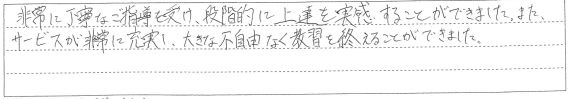 非常に丁寧なご指導を受け、段階的に上達を実感することができました。また、
サービスが非常に充実し、大きな不自由なく教習を終えることができました。